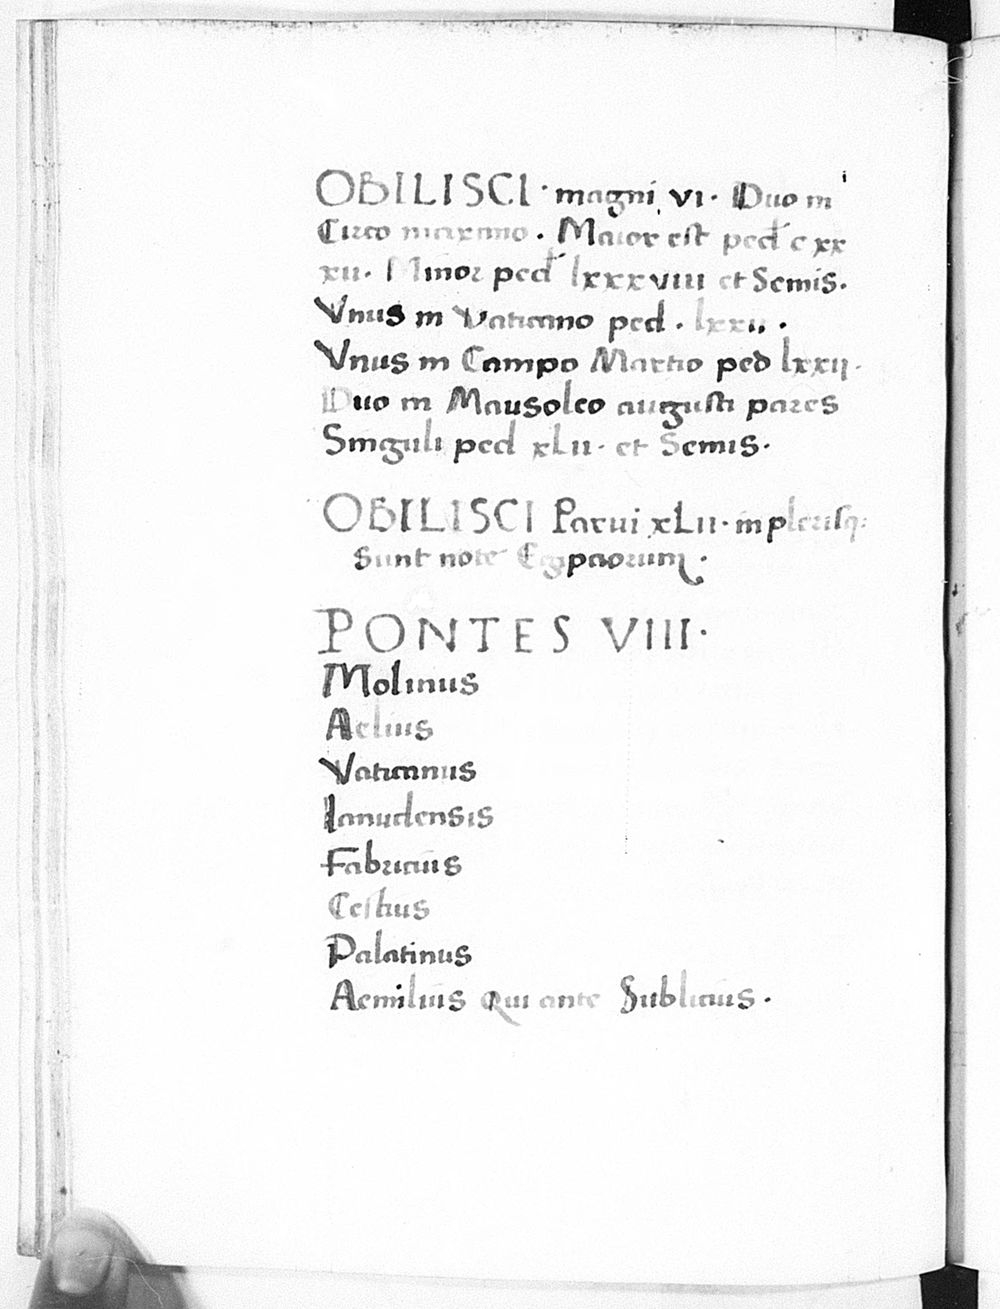 OBILISCI · magni vi · Duo in
Circo maximo . Maior est ped c xx
xii . Minor ped lxxxviiii et Semis .
Vnus in Vaticano ped . lxxii .
Vnus in Campo Martio ped lxxii .
Duo in Mausoleo augusti pares
Singuli ped xLii · et Semis .
OBILISCI Parui xLii · in plerisq;
Sunt note Egiptiorum .
PONTES VIII ·
Molinus
Aelius
Vaticanus
Ianudensis
Fabricius
Cestius
Palatinus
Aemilius Qui ante Sublicius .